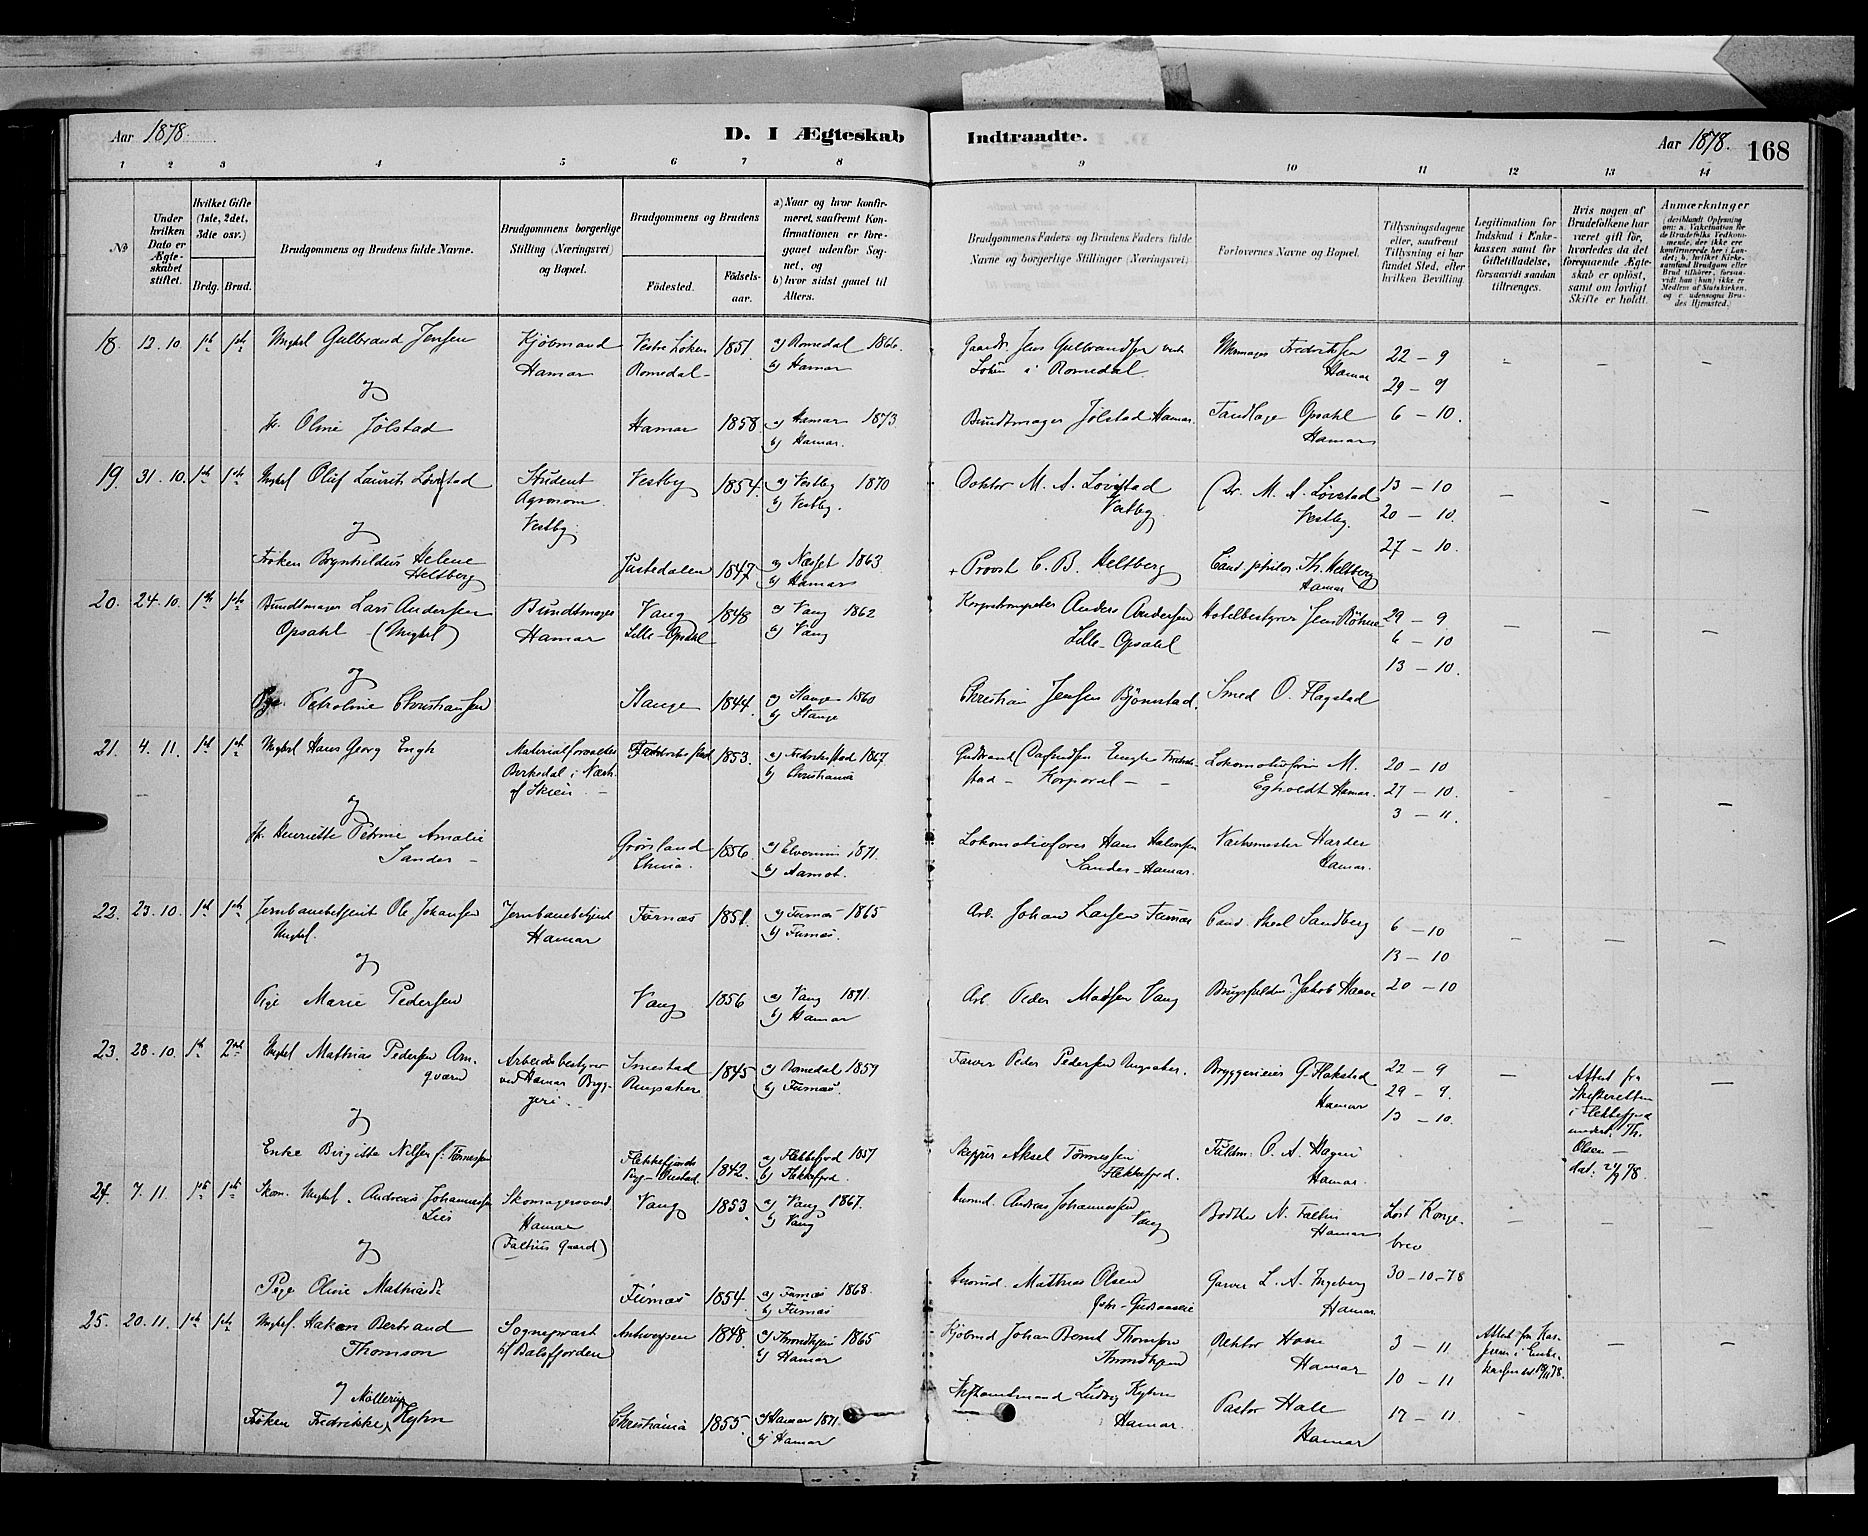 Aar 1878. D. I Ægteskab Indtraadte. Aar 1878. 168
1 2 3 4 5 6 7 8 9 10 11 12 13 14
No
Under hvilken Dato er Ægteskabet stiftet.
Hvilket Gifte (1ste, 2det, 3die osv.)
Brdg. Brud.
Brudgommens og Brudens fulde Navne.
Brudgommens borgerlige Stilling (Næringsvei) og Bopæl.
Brudgommens og Brudens
Födested. Födsels-aar.
a) Naar og hvor konfirmeret, saafremt Konfirmationen er foregaaet udenfor Sognet, og
b) hvor sidst gaaet til Alters.
Brudgommens Faders og Brudens Faders fulde Navne og borgerlige Stillinger (Næringsvei).
Forlovernes Navne og Bopæl.
Tillysningsdagene eller, saafremt Tillysning ei har fundet Sted, efter hvilken Bevilling.
Legitimation for Indskud i Enkekassen samt for Giftetilladelse, forsaavidt saadan tiltrænges.
Hvis nogen af Brudefolkene har været gift för, hvorledes da det foregaaende Ægteskab er oplöst, samt om lovligt Skifte er holdt.
Anmærkninger
18. 12. 10 1ste 1ste Ungkl Gulbrand Jensen Kjöbmand Hamar Vestre Löken Romedal 1851. a) Romedal 1866. b) Hamar Gaardbr. Jens Gulbrandsen vestre Löken i Romedal Fredriksen Hamar 22 - 9 29 - 9 6 - 10. - - -
og
Oline Jölstad Hamar 1858 a) Hamar 1873. b) Hamar. Bundtmager Jölstad Hamar. Tandlæge Opsahl Hamar
19. 31. 10. 1ste 1ste Ungkl Oluf Laurits Lövstad Student Agronom. Vestby. Vestby 1854. a) Vestby 1870 b) Vestby. Doktor M. A. Lövstad Vestby. Dr. M. A. Lövstad Vestby. 13 - 10 20 - 10. 27 - 10. - - -
og
Fröken Brynhildus Helene Heltberg Justedalen 1847 a) Næsset 1863 b) Hamar + Provst C. B. Heltberg Cand philos Th. Heltberg Hamar
20. 24. 10. 1ste 1ste Bundtmager Lars Andersen Opsahl (Ungkl) Bundtmager Hamar Vang Lille-Opsahl 1848 a) Vang 1862 b) Vang Anders Andersen Lille-Opsahl Hotelbestyrer Jens 29 - 9 6 - 10 13 - 10. - - -
og
Pige Petroline Christiansen Stange 1844. a) Stange 1860 b) Stange Christian Jensen Björnstad. Smed O. Flagstad
21. 4. 11. 1ste 1ste Ungkl Hans Georg Engh Materialforvalter i Nærh. af Skien. - Fredriksstad 1853. a) Fredrikstad 1867. b) Christiania Engh Fredrikstad - Korporal - Lokomotivförer M. Egholdt Hamar. 20 - 10 27 - 10. 3 - 11. - - -
og
Henriette Petrine Amalie Sander - Grönland Chnia. 1856. a) Elverum 1871. b) Aamot. Lokomotivförer Hans Halvorsen Sander - Hamar. Harder Hamar.
22. 23. 10. 1ste 1ste Jernbanebetjent Ole Johansen Ungkl. Jernbanebetjent Hamar Furnæs 1851. a) Furnæs 1865 b) Furnæs. Arb. Johan Larsen Furnæs Cand. theol Sandberg 6 - 10 13 - 10 20 - 10 - - -
og
Pige Marie Pedersen Vang 1856 a) Vang 1871. b) Hamar Arb. Peder Madsen Vang Jakob
23. 28. 10. 1ste 2den Ungkl Mathias Pedersen Arnqværn Arbeidsbestyrer ved Hamar Bryggeri. - Smestad Ringsaker. 1845 a) Romedal 1859 b) Furnæs. Farver Peder Pedersen Ringsaker. Bryggerieier G. Flakstad Hamar 22 - 9 29 - 9. 13 - 10. - Attest fra Skifteretten i Flekkefjord undert. Th. Olsen - dat. 21/9 78. -
og
Enke Birgitte Nilsen f. Tönnessen Flekkefjord 1842. a) Flekkefjord 1857 b) Flekkefjord. Skipper Aksel Tönnessen Flekkefjord. Fuldm. O. A. Hagen Hamar.
24. 7. 11. 1ste 1ste Skom. Ungkl. Andreas Johannessen Lier Skomagersvend Hamar (Faltins Gaard) Vang 1853. a) Vang 1867. b) Vang Andreas Johannessen Vang Bödker N. Faltin Hamar Löst Kongebrev 30-10-78 - - -
og
Pige Oline Mathisdt Furnæs 1854. a) Furnæs 1868. b) Furnæs Mathias Olsen Garver L. A. Ingeberg Hamar.
25. 20. 11. 1ste 1ste Ungkl. Hakon Bertrand Thomson Sogneprest til Balsfjorden Antwerpen 1848. a) Throndhjem 1865 b) Hamar Kjöbmd Johan Bernt Thomson Throndhjem Rektor Hamar 3 - 11 10 - 11 17 - 11. Attest fra - -
og Möllerup
Fröken Fredrikke Kyhn Christiania 1855. a) Hamar 1871. b) Hamar Stiftamtmand Ludvig Kyhn Hamar. Pastor Hall Hamar